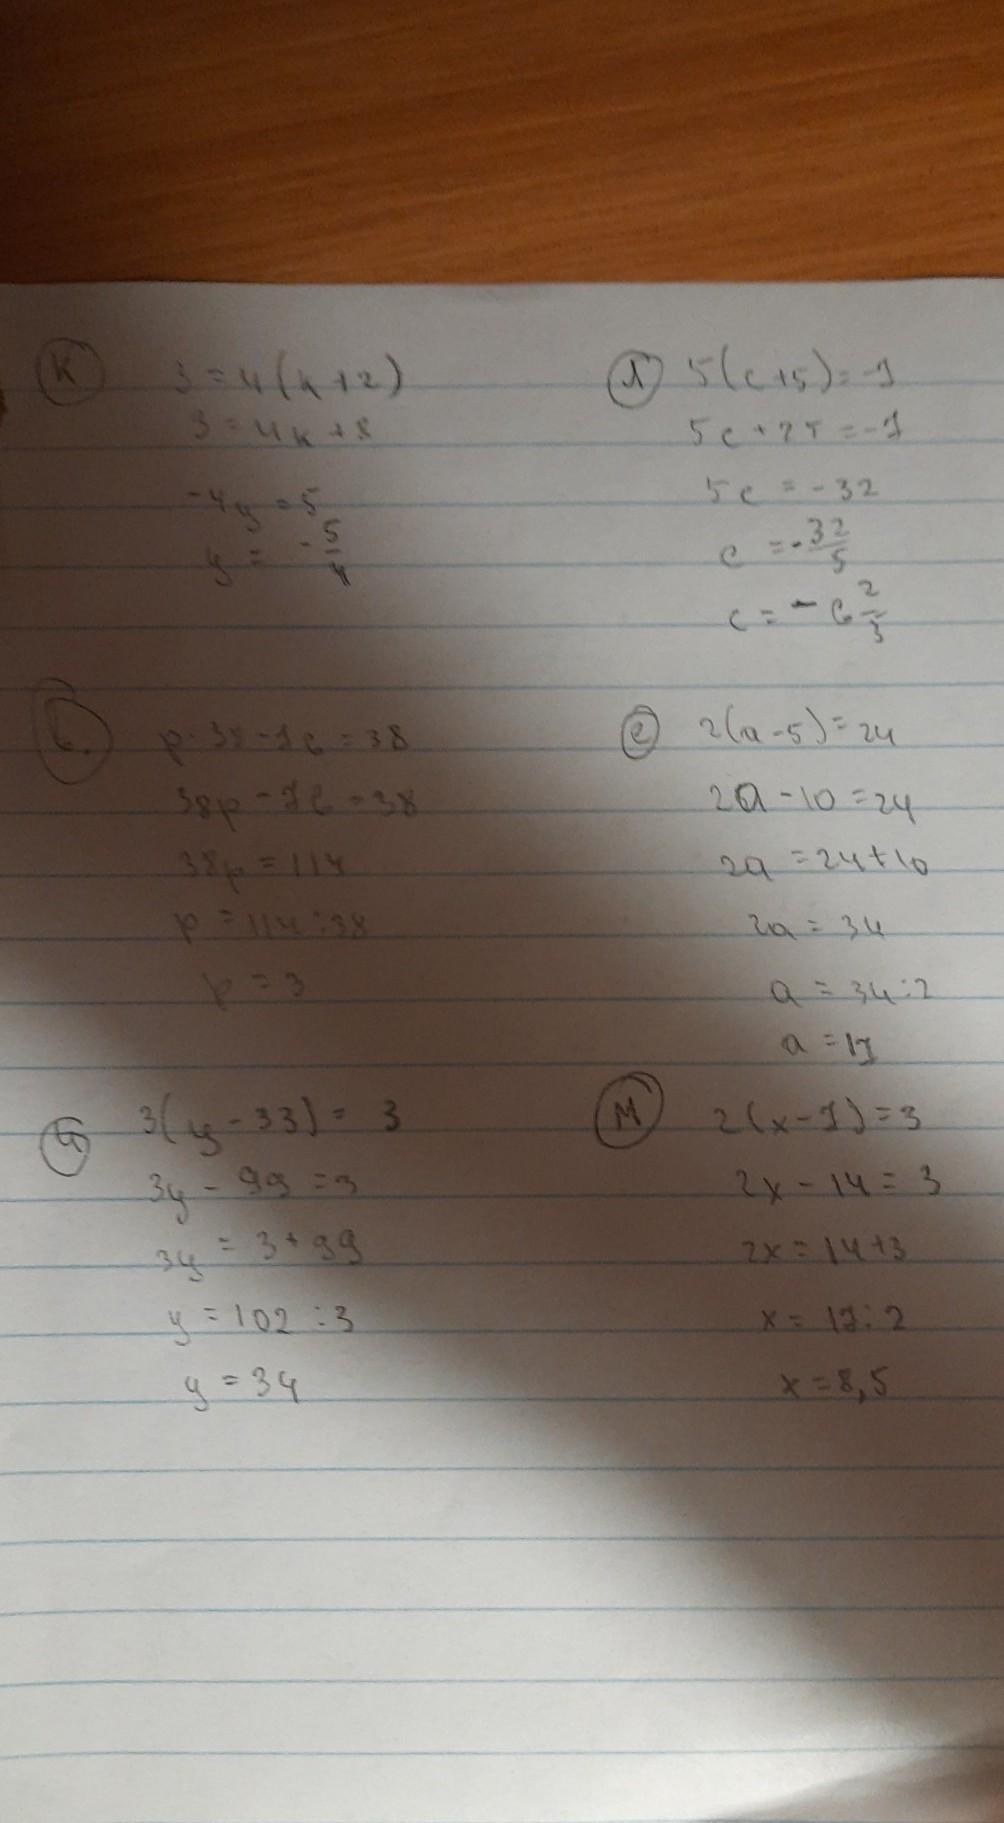 К
3 = 4(k+2)
3 = 4k+8
-4y = 5
y = -5/4
Л
5(c+5) = -7
5c+25 = -7
5c = -32
c = -32/5
c = -6 2/3
38p
= 38
38p = 114
p = 114:38
p = 3
e
2(a-5) = 24
2a - 10 = 24
2a = 24+10
2a = 34
a = 34:2
a = 17
3(y-33) = 3
3y - 99 = 3
3y = 3+99
y = 102:3
y = 34
М
2(x-7) = 3
2x - 14 = 3
2x = 14+3
x = 17:2
x = 8,5